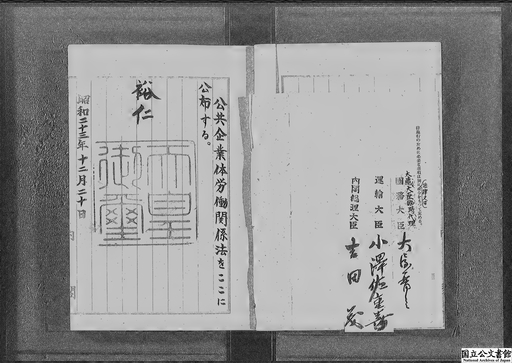 公共企業体労働関係法をここに
公布する。
裕仁
天皇
御璽
昭和二十三年十二月二十日
内閣総理大臣
吉田茂
運輸大臣
小澤佐重喜
国務大臣
国立公文書館
National Archives of Japan